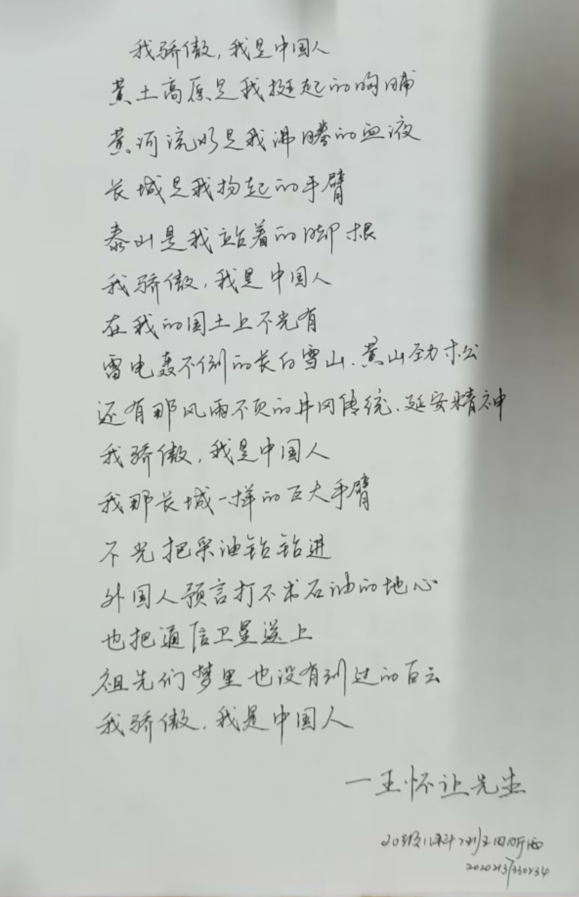 我骄傲，我是中国人
黄土高原是我挺起的胸脯
黄河流水是我沸腾的血液
长城是我扬起的手臂
泰山是我站着的脚根
我骄傲，我是中国人
在我的国土上不光有
雷电轰不倒的长白雪山、黄山劲松
还有那风雨不灭的井冈传统、延安精神
我骄傲，我是中国人
我那长城一样的巨大手臂
不光把采油钻钻进
外国人预言打不出石油的地心
也把通信卫星送上
祖先们梦里也没有到过的白云
我骄傲，我是中国人
一王怀让先生
20级